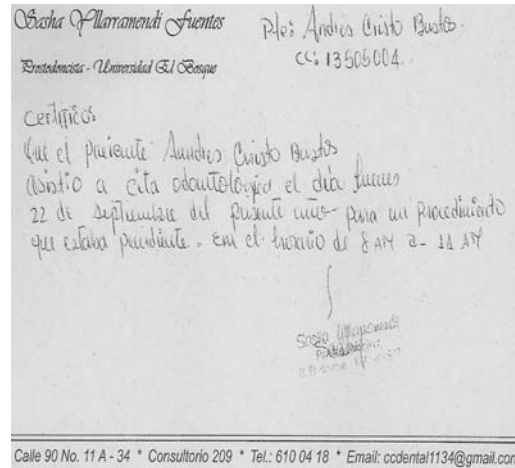 Sasha Yllarramendi Fuentes
Pte: Andres Cristo Bustos.
Prostodoncista - Universidad El Bosque
CC: 13505004.
Certifico:
Que el paciente Andres Cristo Bustos
asistio a cita odontologica el día jueves
22 de Septiembre del presente año para un Procedimiento
que estaba pendiente. en el horario de 8 AM a - 11 AM
Sasha Yllarramendi
Calle 90 No. 11 A - 34 * Consultorio 209 * Tel.: 610 04 18 * Email: ccdental1134@gmail.com